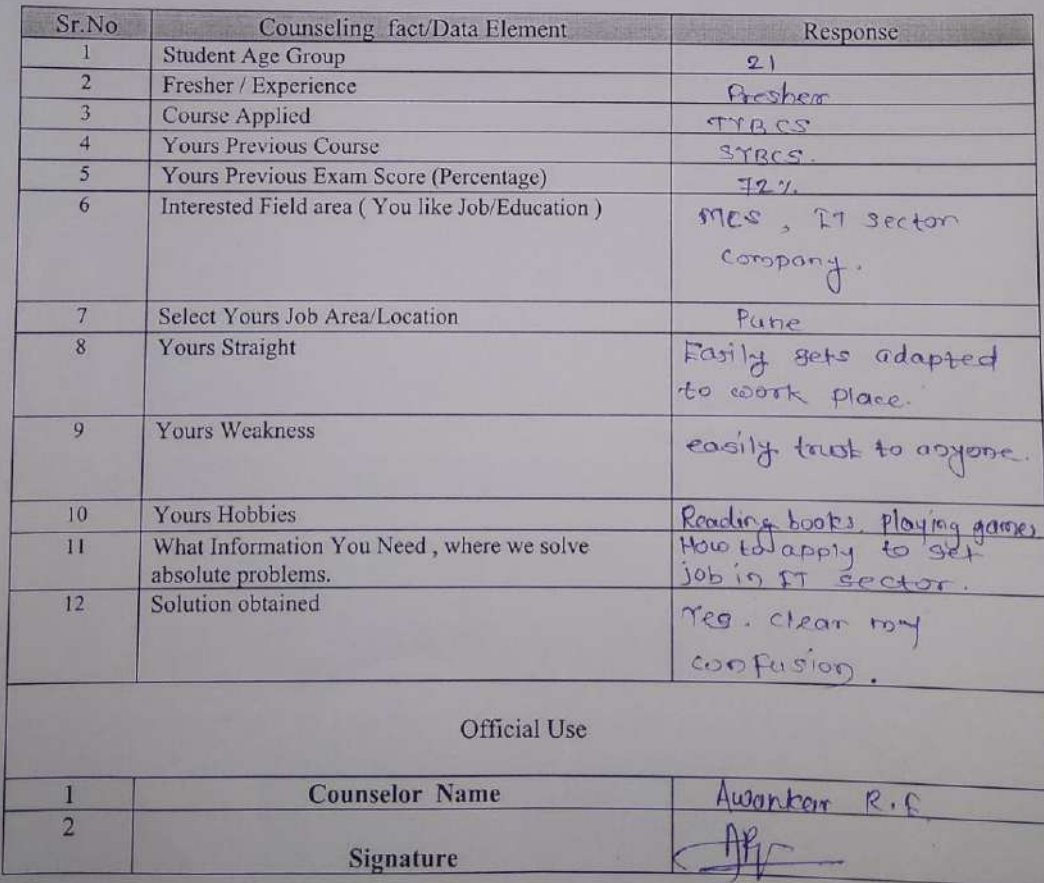 Sr.No Counseling fact/Data Element Response
1 Student Age Group 21
2 Fresher / Experience Fresher
3 Course Applied TYBCS
4 Yours Previous Course SYBCS.
5 Yours Previous Exam Score (Percentage) 72%.
6 Interested Field area ( You like Job/Education ) MCS , IT sector
company.
7 Select Yours Job Area/Location Pune
8 Yours Straight Easily gets adapted
to work place.
9 Yours Weakness easily trust to anyone.
10 Yours Hobbies Reading books, playing games
11 What Information You Need , where we solve How to apply to get
absolute problems. job in IT sector.
12 Solution obtained Yes. clear my
confusion.
Official Use
1 Counselor Name Awankar R.
2
Signature